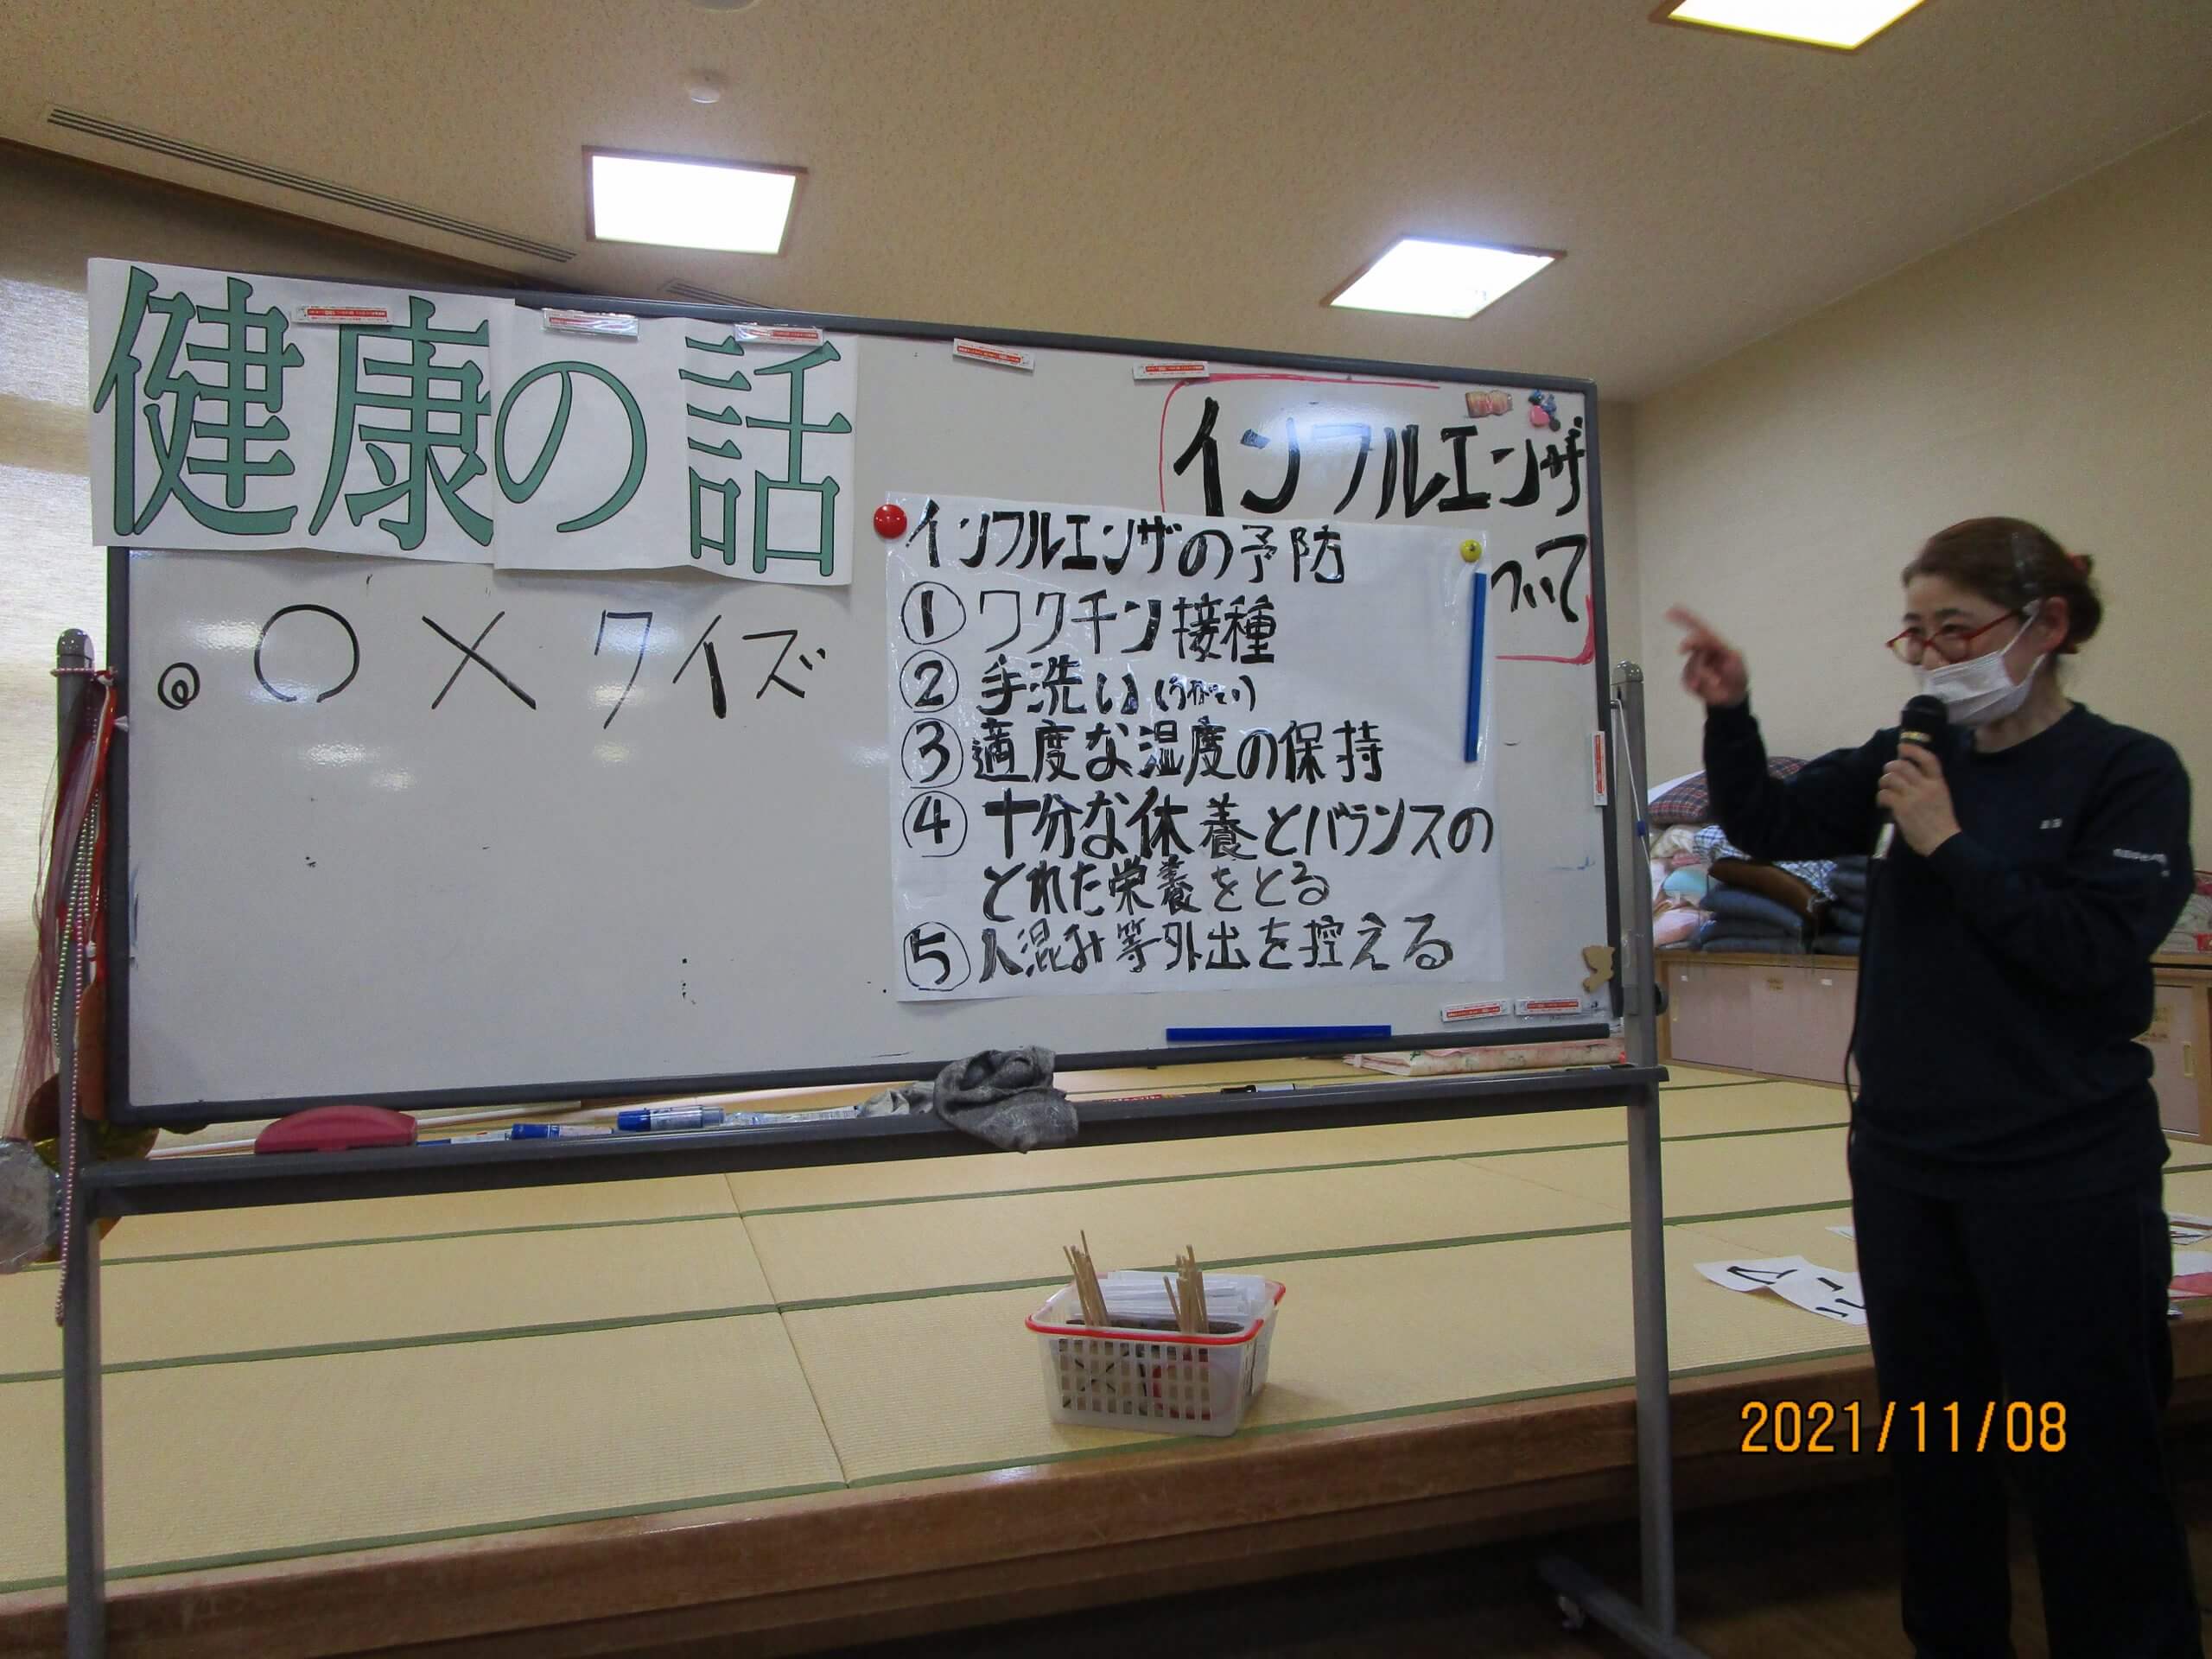 健康の話
インフルエンザ
ついて
◎ ○×クイズ
インフルエンザの予防
①ワクチン接種
②手洗い(うがい)
③適度な湿度の保持
④十分な休養とバランスの
とれた栄養をとる
⑤人混み等外出を控える
2021/11/08